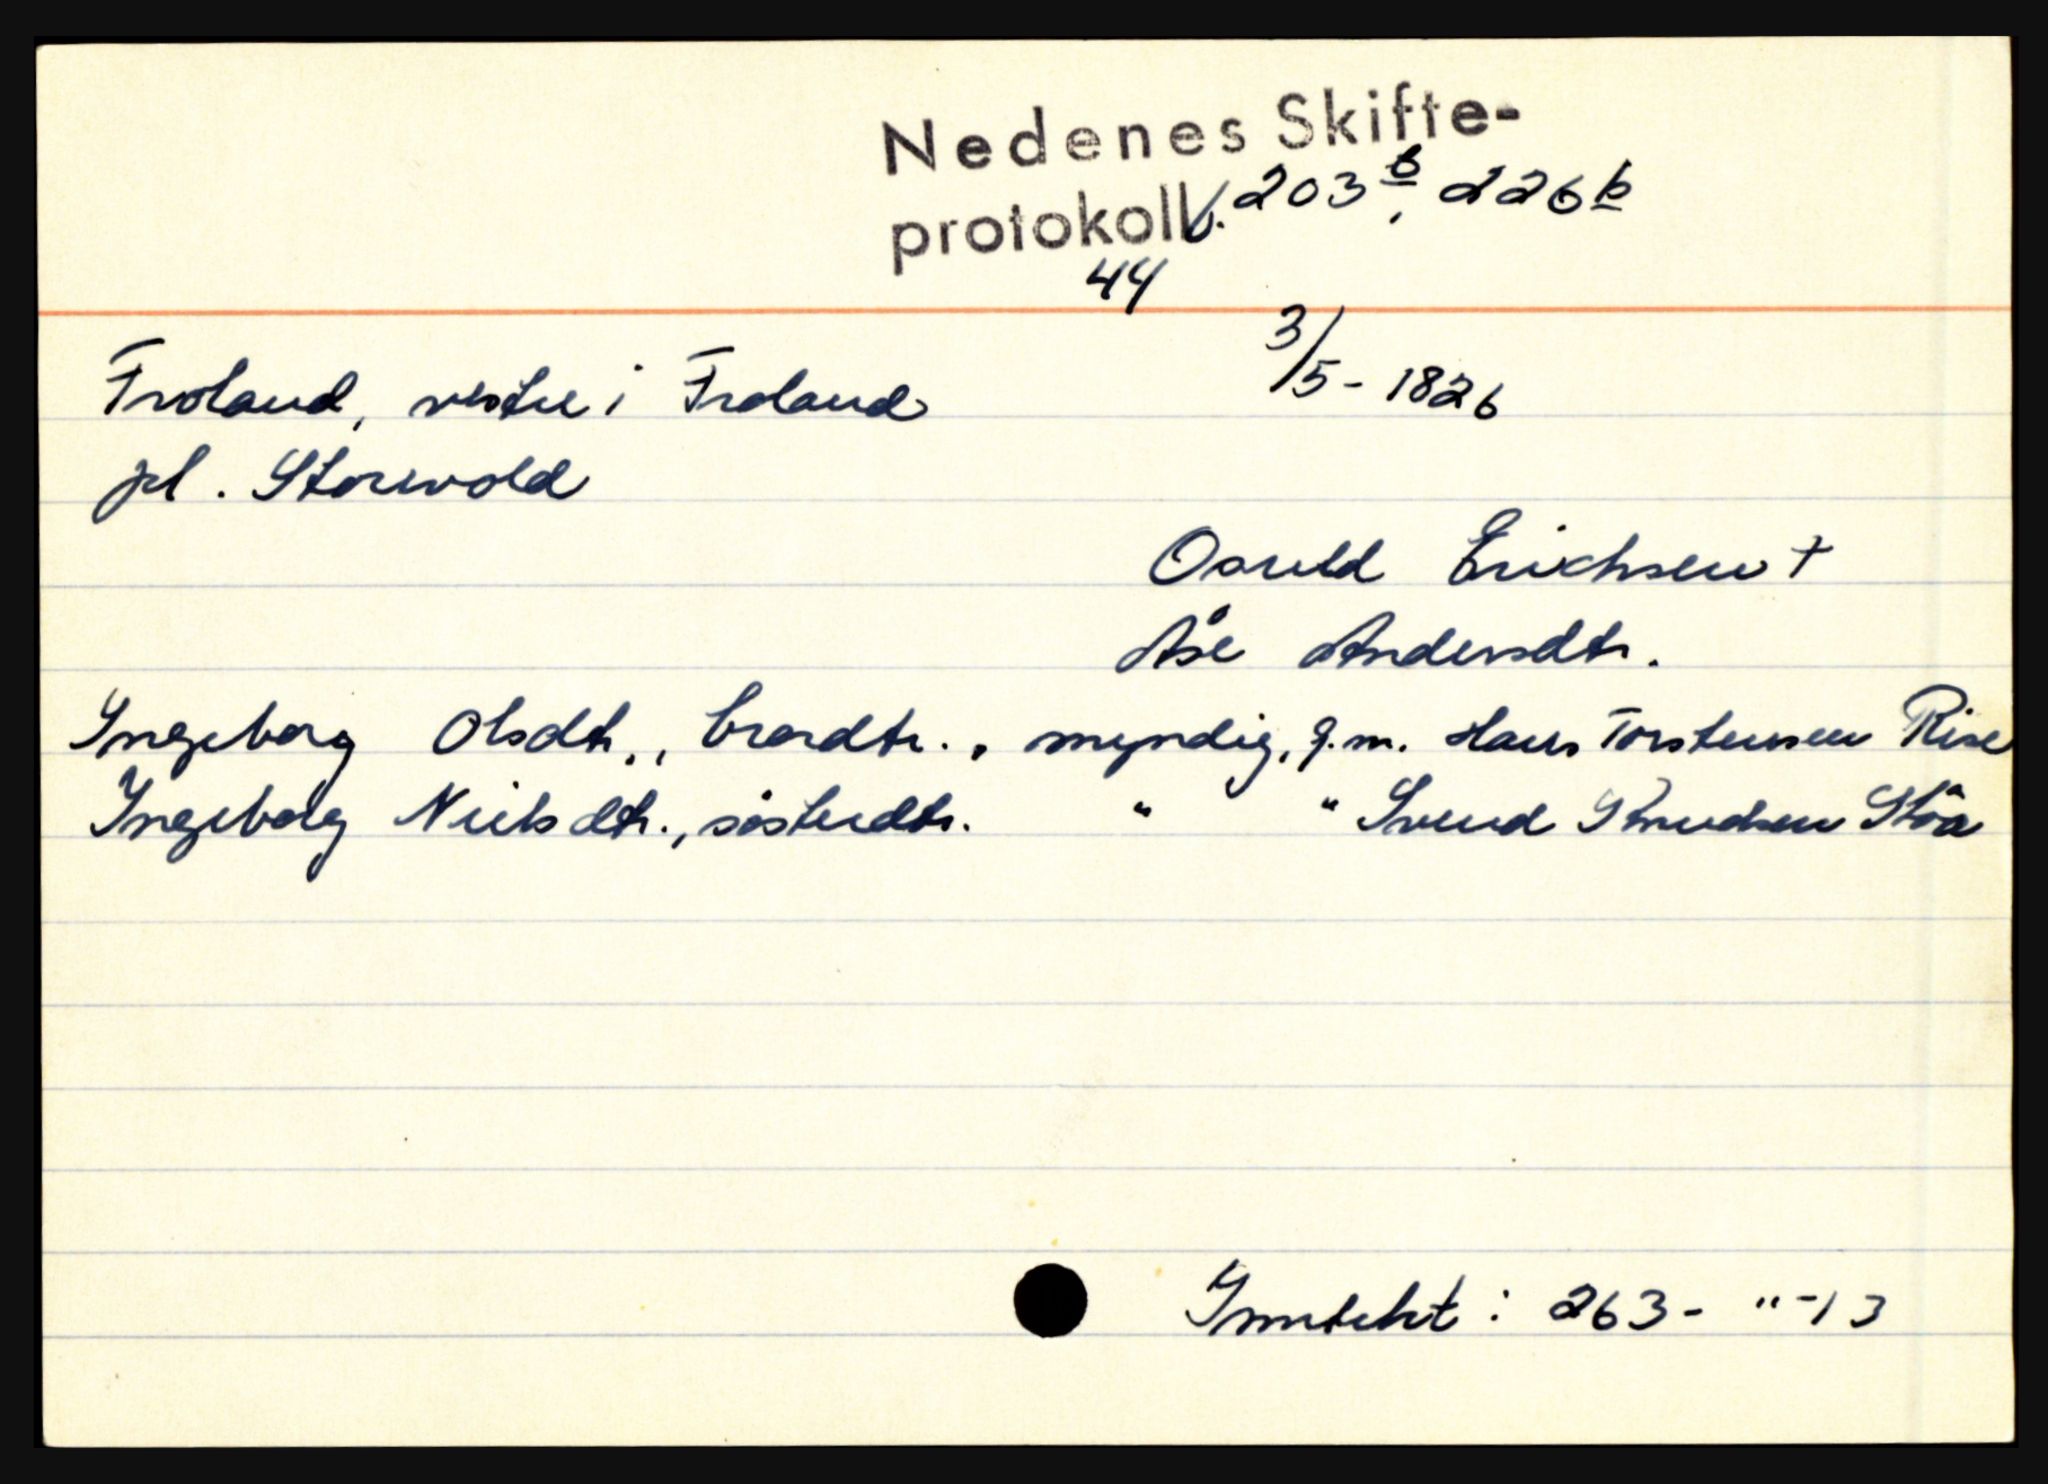 Nedenes Skifte-
protokoll f. 203 b, 226 b
44
3/5 - 1826
Froland, vestre i Froland
pl. Storwold
Osuld Erichsen +
Åse Andersdtr.
Ingeborg Olsdtr., brordtr., myndig, g.m. Hans Torstensen Rise
Ingeborg Nielsdtr., søsterdtr. " " Svend Knudsen Stöa
Inntekt : 263 - " - 13